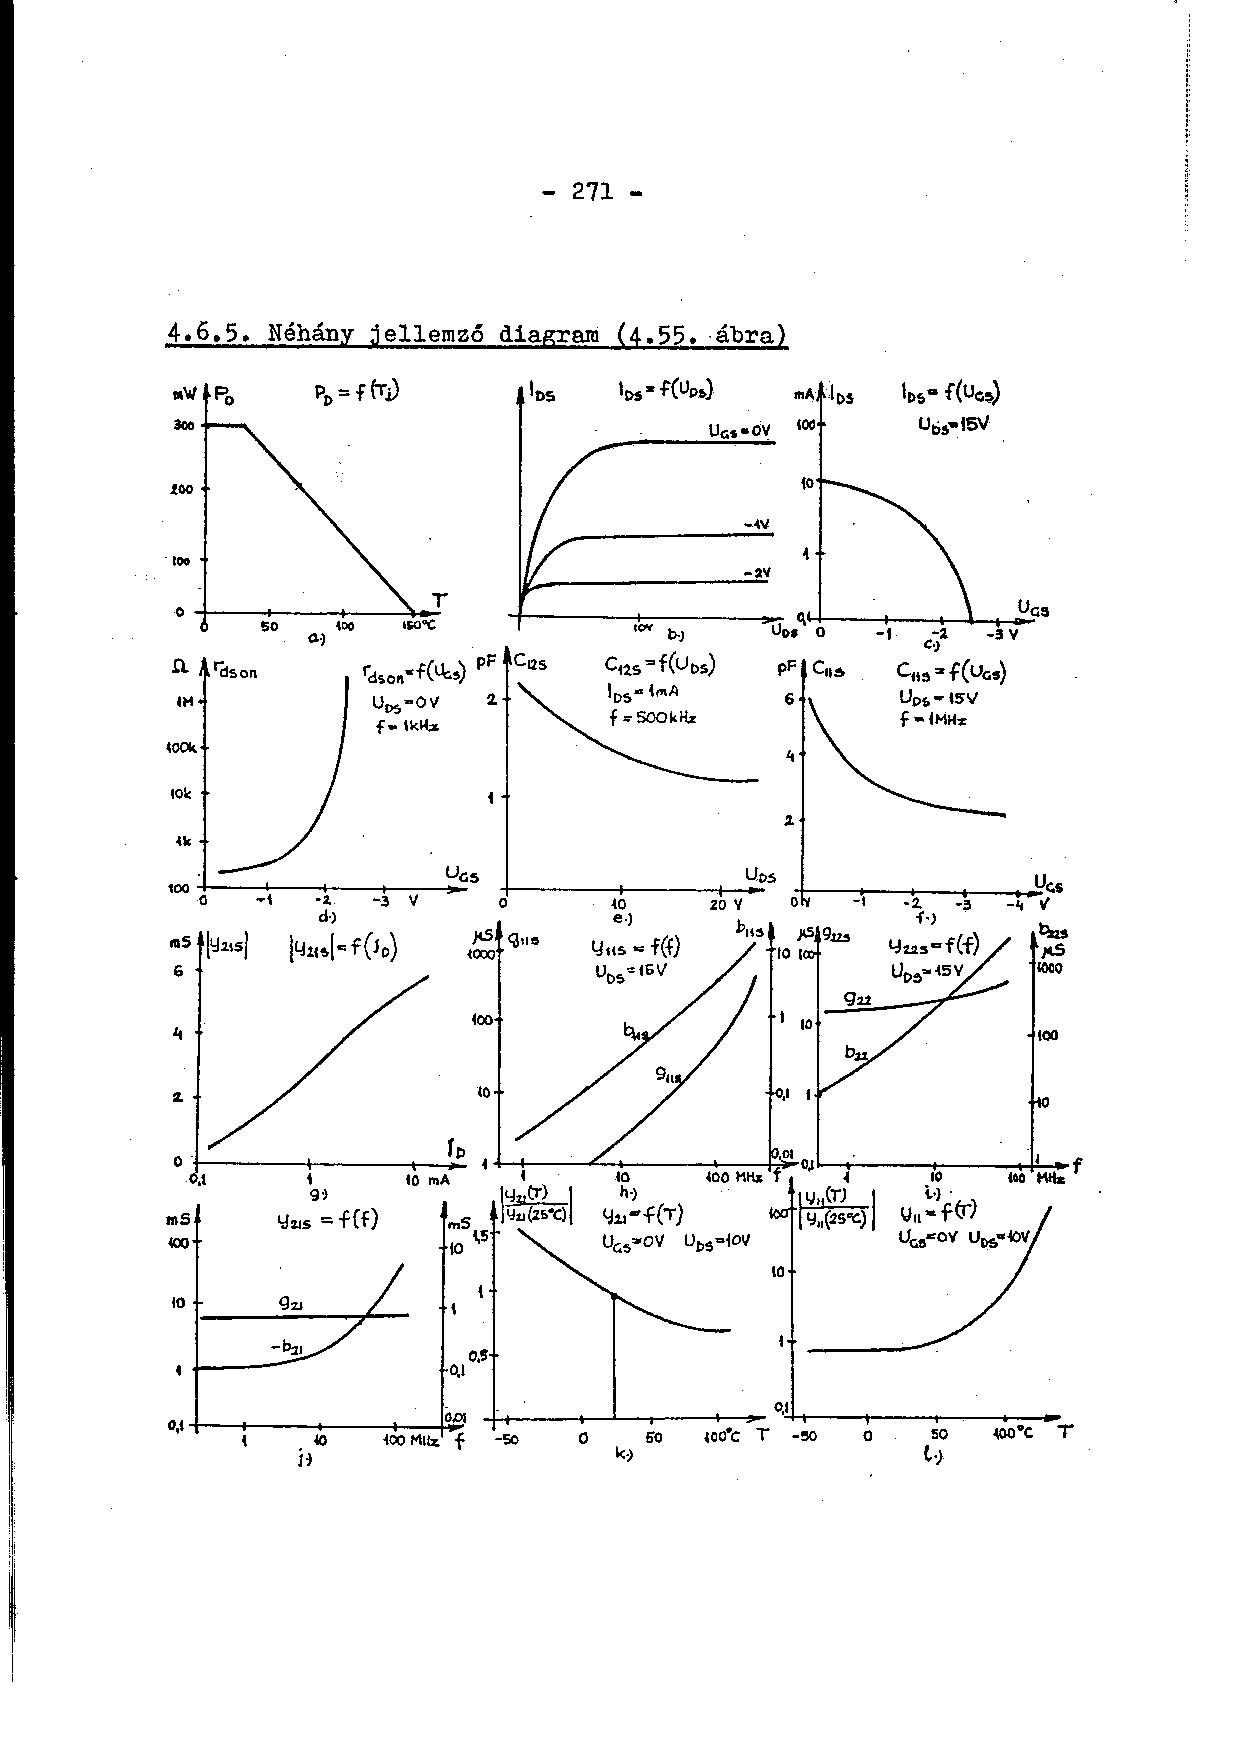 - 271 -
4.6.5. Néhány jellemző diagram (4.55. ábra)
mW P_D P_D = f(T_j)
300
200
100
0
0 50 100 150°C T
a.)
I_DS I_DS = f(U_DS)
U_GS = 0V
-1V
-2V
10V U_DS
b.)
mA I_DS I_DS = f(U_GS)
U_DS = 15V
100
10
1
0,1
0 -1 -2 -3 V U_GS
c.)
Ω r_dson r_dson = f(U_GS)
U_DS = 0V
f = 1kHz
1M
100k
10k
1k
100
0 -1 -2 -3 V U_GS
d.)
pF C_12S C_12S = f(U_DS)
I_DS = 1mA
f = 500kHz
2
1
0 10 20 V U_DS
e.)
pF C_11S C_11S = f(U_GS)
U_DS = 15V
f = 1MHz
6
4
2
0V -1 -2 -3 -4 V U_GS
f.)
mS |y_21S| |y_21S| = f(I_D)
6
4
2
0
0,1 1 10 mA I_D
g.)
μS g_11S y_11S = f(f) b_11S
U_DS = 15V
1000 10
100 1
10 0,1
1 0,01
b_11S
g_11S
1 10 100 MHz f
h.)
μS g_22S y_22S = f(f) b_22S μS
U_DS = 15V
100 1000
10 100
1 10
0,1 1
g_22
b_22
1 10 100 MHz f
i.)
mS y_21S = f(f) mS
100 10
10 1
1 0,1
0,1 0,01
g_21
-b_21
1 10 100 MHz f
j.)
|y_21(T) / y_21(25°C)| y_21 = f(T)
U_GS = 0V U_DS = 10V
1,5
1
0,5
-50 0 50 100°C T
k.)
|y_11(T) / y_11(25°C)| y_11 = f(T)
U_GS = 0V U_DS = 10V
100
10
1
0,1
-50 0 50 100°C T
l.)